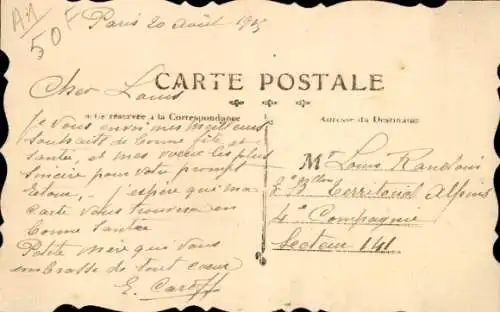 A11
50F
Paris 20 Août 1915
CARTE POSTALE
Cher Louis
Ce réservée a la Correspondance
Adresse du Destinataire
Je vous envoi mes meilleurs
souhaits de bonne fête et
santée, et mes vœux les plus
sincère pour votre prompt
retour, j'espère que ma
carte vous trouvera en
bonne santée
Petite mère qui vous
embrasse de tout cœur
E. Caroff
Mr Louis
Territorial Alpins
4e Compagnie
Secteur 141